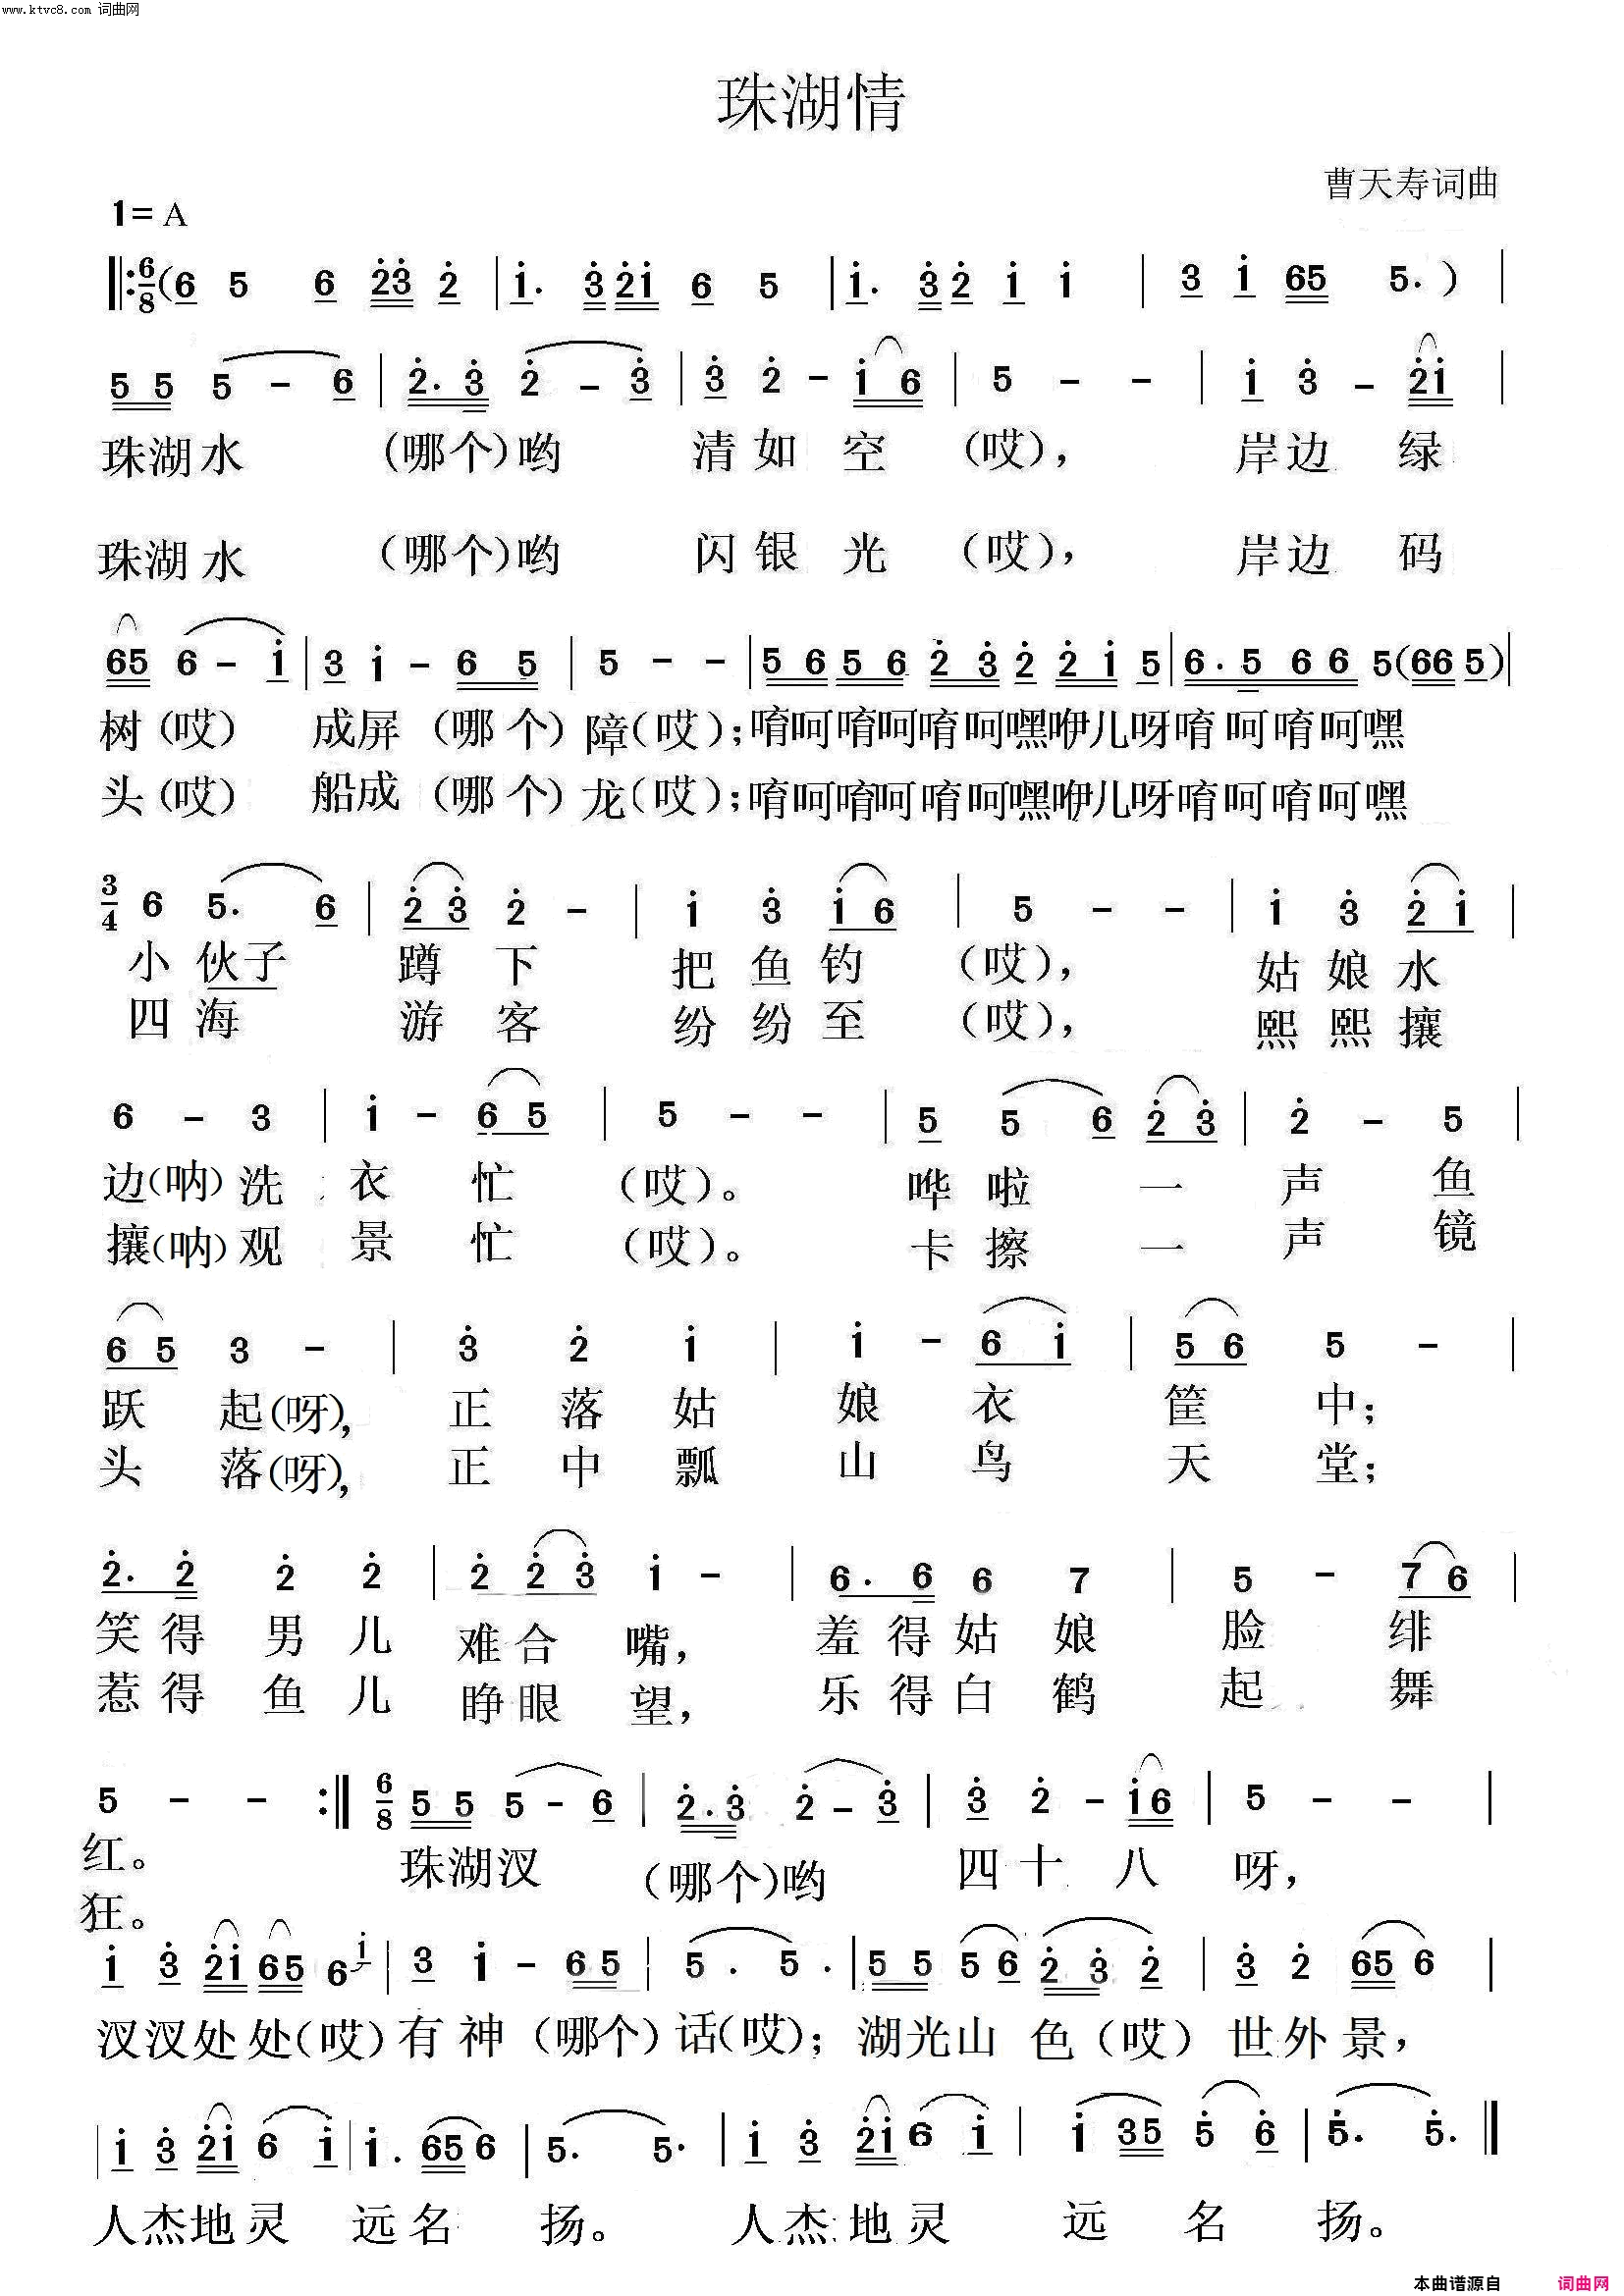 www.ktvc8.com 词曲网
珠湖情
曹天寿词曲
1= A
6/8 (6 5 6 23 2 | 1. 3 21 6 5 | 1. 3 2 1 1 | 3 1 65 5. ) |
5 5 5 - 6 | 2. 3 2 - 3 | 3 2 - 1 6 | 5 - - | 1 3 - 21 |
珠湖水 (哪个)哟 清如空 (哎), 岸边绿
珠湖水 (哪个)哟 闪银光 (哎), 岸边码
65 6 - 1 | 3 1 - 6 5 | 5 - - | 5 6 5 6 2 3 2 2 1 5 | 6. 5 6 6 5(66 5) |
树(哎) 成屏(哪个)障(哎);唷呵唷呵唷呵嘿咿儿呀唷呵唷呵嘿
头(哎) 船成(哪个)龙(哎);唷呵唷呵唷呵嘿咿儿呀唷呵唷呵嘿
3/4 6 5. 6 | 2 3 2 - | 1 3 1 6 | 5 - - | 1 3 2 1 |
小伙子 蹲下 把鱼钓 (哎), 姑娘水
四海 游客 纷纷至 (哎), 熙熙攘
6 - 3 | 1 - 6 5 | 5 - - | 5 5 6 2 3 | 2 - 5 |
边(呐)洗 衣忙 (哎)。 哗啦一声鱼
攘(呐)观 景忙 (哎)。 卡擦一声镜
6 5 3 - | 3 2 1 | 1 - 6 1 | 5 6 5 - |
跃起(呀), 正落姑 娘衣 筐中;
头落(呀), 正中瓢 山鸟 天堂;
2. 2 2 2 | 2 2 3 1 - | 6. 6 6 7 | 5 - 7 6 |
笑得男儿 难合嘴, 羞得姑娘 脸绯
惹得鱼儿 睁眼望, 乐得白鹤 起舞
5 - - :‖ 6/8 5 5 5 - 6 | 2. 3 2 - 3 | 3 2 - 1 6 | 5 - - |
红。 珠湖汊 (哪个)哟 四十八 呀,
狂。
1 3 21 65 6 1 | 3 1 - 6 5 | 5. 5. | 5 5 5 6 2 3 2 | 3 2 65 6 |
汊汊处处(哎)有神(哪个)话(哎);湖光山色(哎)世外景,
| 1 3 21 6 1 | 1. 65 6 | 5. 5. | 1 3 21 6 1 | 1 35 5 6 | 5. 5. ‖
人杰地灵 远名 扬。 人杰地灵 远名 扬。
本曲谱源自 词曲网